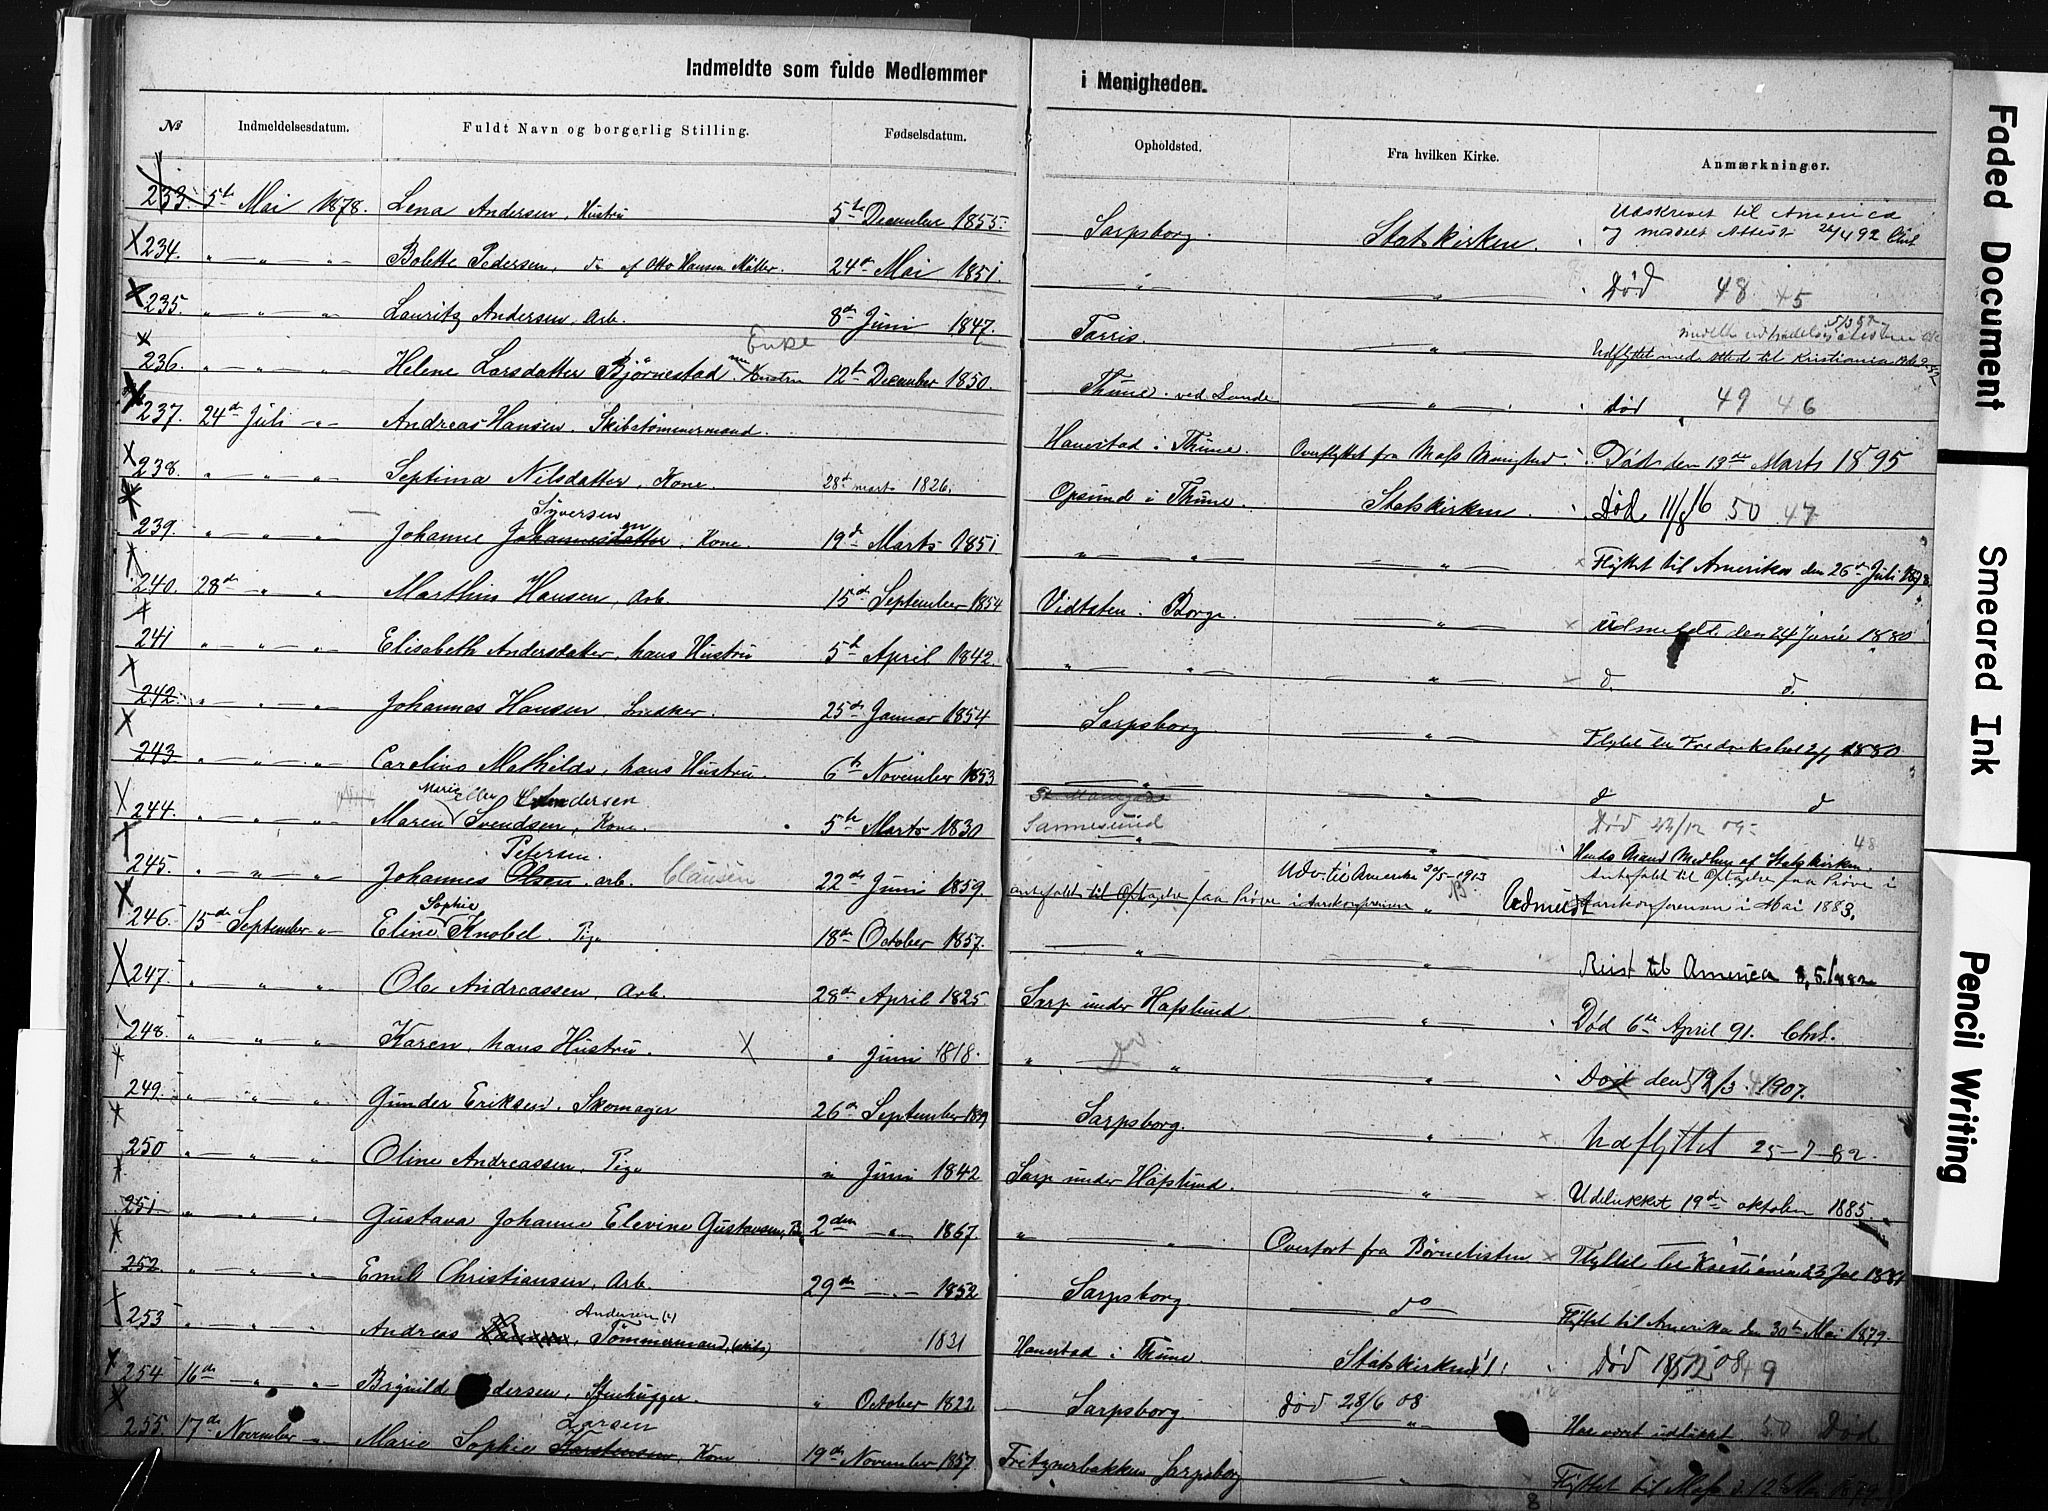 Indmeldte som fulde Medlemmer i Menigheden.
No Indmeldelsesdatum. Fuldt Navn og borgerlig Stilling. Fødselsdatum. Opholdsted. Fra hvilken Kirke. Anmærkninger.
Udskrevet til America
233. 5te Mai 1878. Lena Andersen, Hustru 5te December 1855. Sarpsborg. Statskirken. og Attest
234. " — " — " — Bolette Pedersen, af Otto Hansen Møller. 24de Mai 1851. — " — — " — Død 48 45
235. " — " — " — Lauritz Andersen, Arb. 8de Juni 1847. Torris — " — Udflyttet med Attest til Kristiania
Enke
236. " — " — " — Helene Larsdatter Bjørnestad 12te December 1850. Thune ved Lande — " — Død 49 46
237. 24de Juli — " — Andreas Hansen. Skibstømmermand. Hanestad i Thune. Overflyttet fra Død den 13de Marts 1895
238. " — " — " — Septima Nilsdatter, Kone. 28de marts 1826. Opsund i Thune. Statskirken. Død 11/8 16 50 47
Syversen
239. " — " — " — Johanne Johannesdatter, Kone. 19de Marts 1851 " — " — " — " — Flyttet til Amerika den 26de Juli 1878.
240. 28de " — " — Marthin Hansen, Arb. 15de September 1854 Vidtsten i Borge — " — Udmeldt den 24 Juni 1880
241 " — " — " — Elisabeth Andersdatter, hans Hustru 5te April 1842. " — " — — " — d. d.
242. " — " — " — Johannes Hansen, 25de Januar 1854 Sarpsborg. 1880
243 " — " — " — Caroline Mathilde, hans Hustru. 6te November 1853 — " — d d
Marie eller Andersen
244. " — " — " — Maren Svendsen, Kone. 5te Marts 1830 Sannesund — " — Død 22/12 09 48
Hends Mand Medlem af Statskirken.
Petersen.
245. " — " — " — Johannes Olsen, arb. Clausen 22de Juni 1859 anbefalet til Optagelse paa Prøve i Aarskonferensen Udv. til Amerika 20/5-1913
Anbefalet til Optagelse paa Prøve i
Aarskonferensen i Mai 1883.
Sophie
246. 15de September — " — Eline Knobel. Pige 18de October 1857. — " — — " — Reist til America 3,5.1882
247. " — " — " — Ole Andreassen, Arb. 28de April 1825 Sarp under Hafslund. — " — Død 6te April 91. Chrl.
248. " — " — " — Karen, hans Hustru. X " Juni 1818. " — Do " — " — Død den 2/3 1907.
249. " — " — " — Gunder Eriksen, Skomager 26de September Sarpsborg. — " — Udflyttet 25-7-82.
250 " — " — " — Oline Andreassen, Pige " Juni 1842 Sarp under Hafslund. — " — Udelukket 19de oktober 1885.
251 " — " — " — Gustava Johanne Elevine Gustavsen, 2den — " — 1867. " — " — Overført fra Børnelisten
252. " — " — " — Emil Christiansen, Arb. 29de — " — 1852 Sarpsborg. — do — Flyttet til Amerika den 30te Mai 1879.
Andersen
253 " — " — " — Andreas Hansen, Tømmermand, 1831 Hanestad i Thune. Statskirken Død
254 16de — " — " — Stenhugger. " October 1822 Sarpsborg. Død 28/6 08 Har været udslukt 50 Død
Larsen
255. 17de November — " — Marie Sophie Karstensen, Kone 19de November 1857. Fritznerbakken Sarpsborg — " — Flyttet til Moss d. 12te Mai 1879
Faded Document
Smeared Ink
Pencil Writing